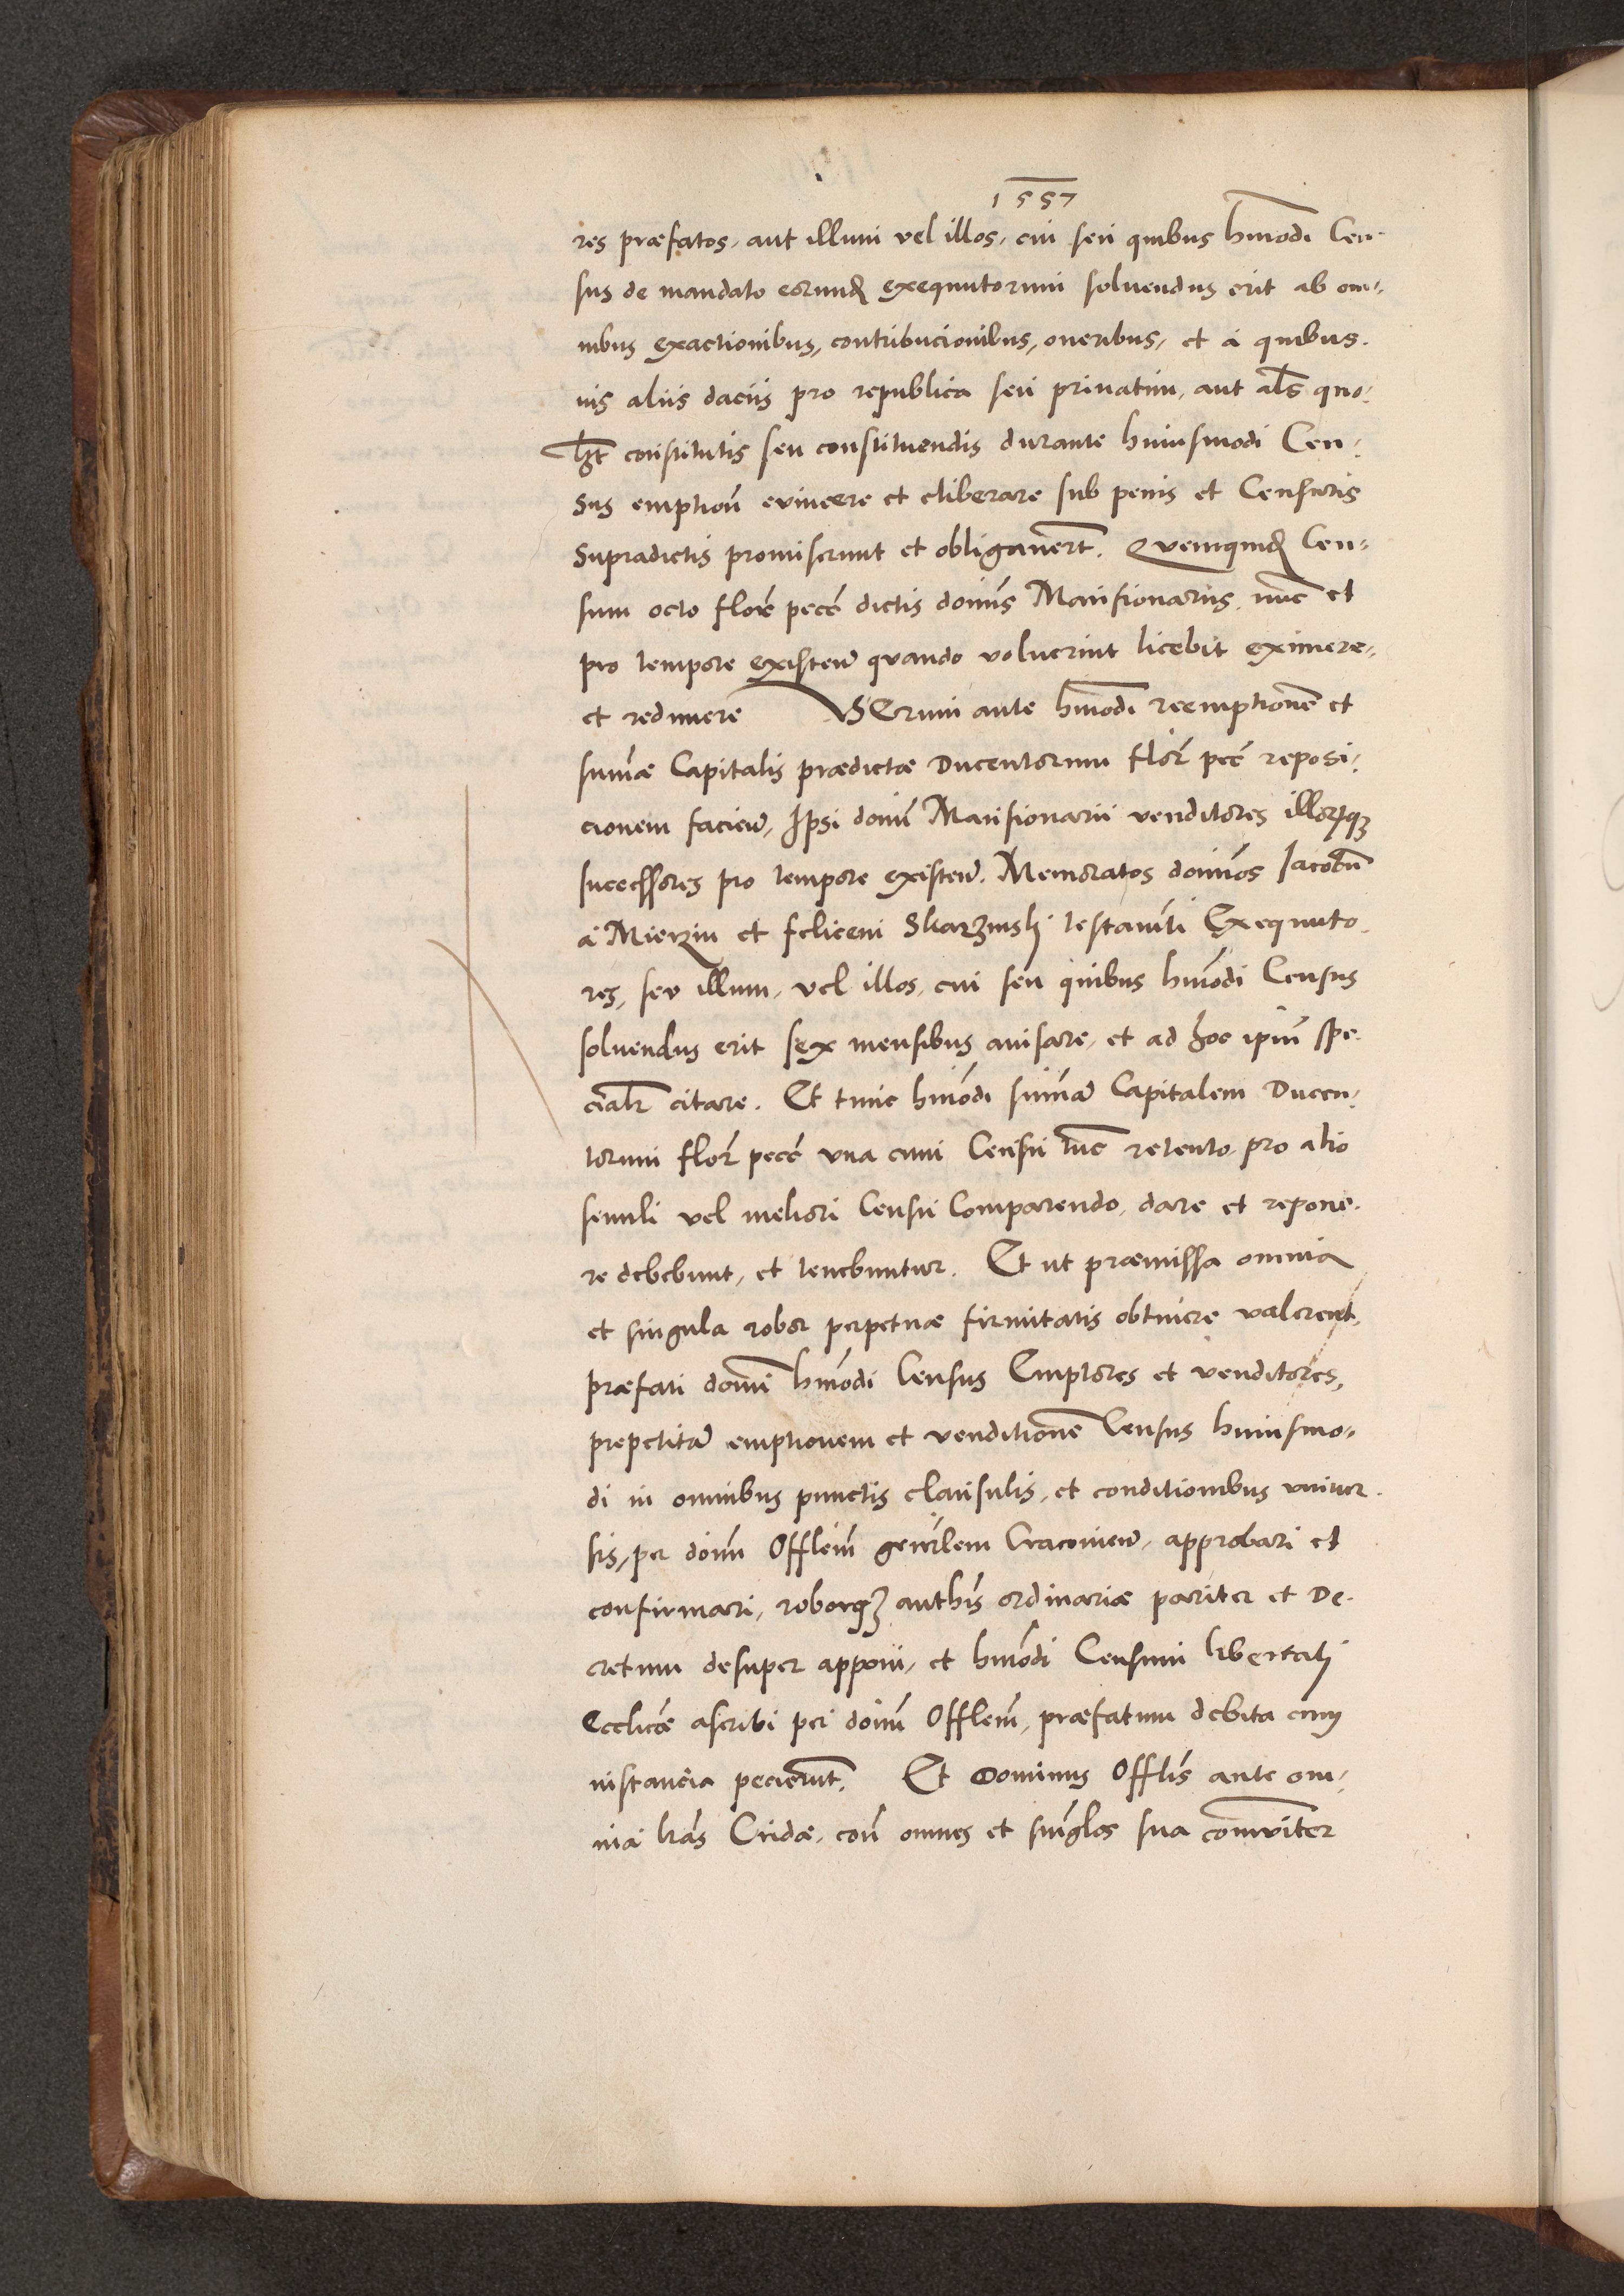 1557
res præfatos, aut illum vel illos, cui seu quibus hmodi Cen-
sus de mandato eorund exequutorum soluendus erit ab om-
nibus exactionibus, contribucionibus, oneribus, et à quibus-
uis aliis daciis pro republica seu priuatim, aut als quo-
lt constitutis seu constituendis durante huiusmodi Cen-
sus emption evincere et eliberare sub penis et Censuris
Supradictis promiserunt et obligauert. Quemquid Cen-
sum octo flore pece dictis domis Mansionariis nuc et
pro tempore existen quando voluerint licebit eximere
et redimere Verum ante hmodi reemptione et
sumæ Capitalis prædictæ Ducentorum flor pec reposi-
cionem facien, Ipsi domi Mansionarii venditores illorqz
successores pro tempore existen. Memoratos dominos Jacobu
à Mierzin et felicem Skarzinskj testamti Exequuto
res, seu illum, vel illos, cui seu quibus hmodi Census
soluendus erit sex mensibus auisare, et ad hoc ipm spe-
cialr citare. Et tunc hmodi sumam Capitalem Ducen-
torum flor pece vna cum Censu tuc retento pro alio
simili vel meliori Censu Comparendo, dare et repone-
re debebunt, et tenebuntur. Et ut præmissa omnia
et singula robor perpetuæ firmitatis obtinere valerent,
præfati domi hmodi Census Emptores et venditores,
prepetita emptionem et venditione Census huiusmo-
di in omnibus punctis clausulis, et conditionibus vniuer-
sis, per domn Offlem genrlem Cracouien, approbari et
confirmari, roborqz authis ordinariæ pariter et De-
cretum desuper apponi, et hmodi Censum libertatj
Ecclicæ ascribi per domn Offlem, præfatum debita cum
instancia pecierunt. Et Dominus Offlis ante om-
nia lras Cridæ, con omnes et singlos sua comuniter